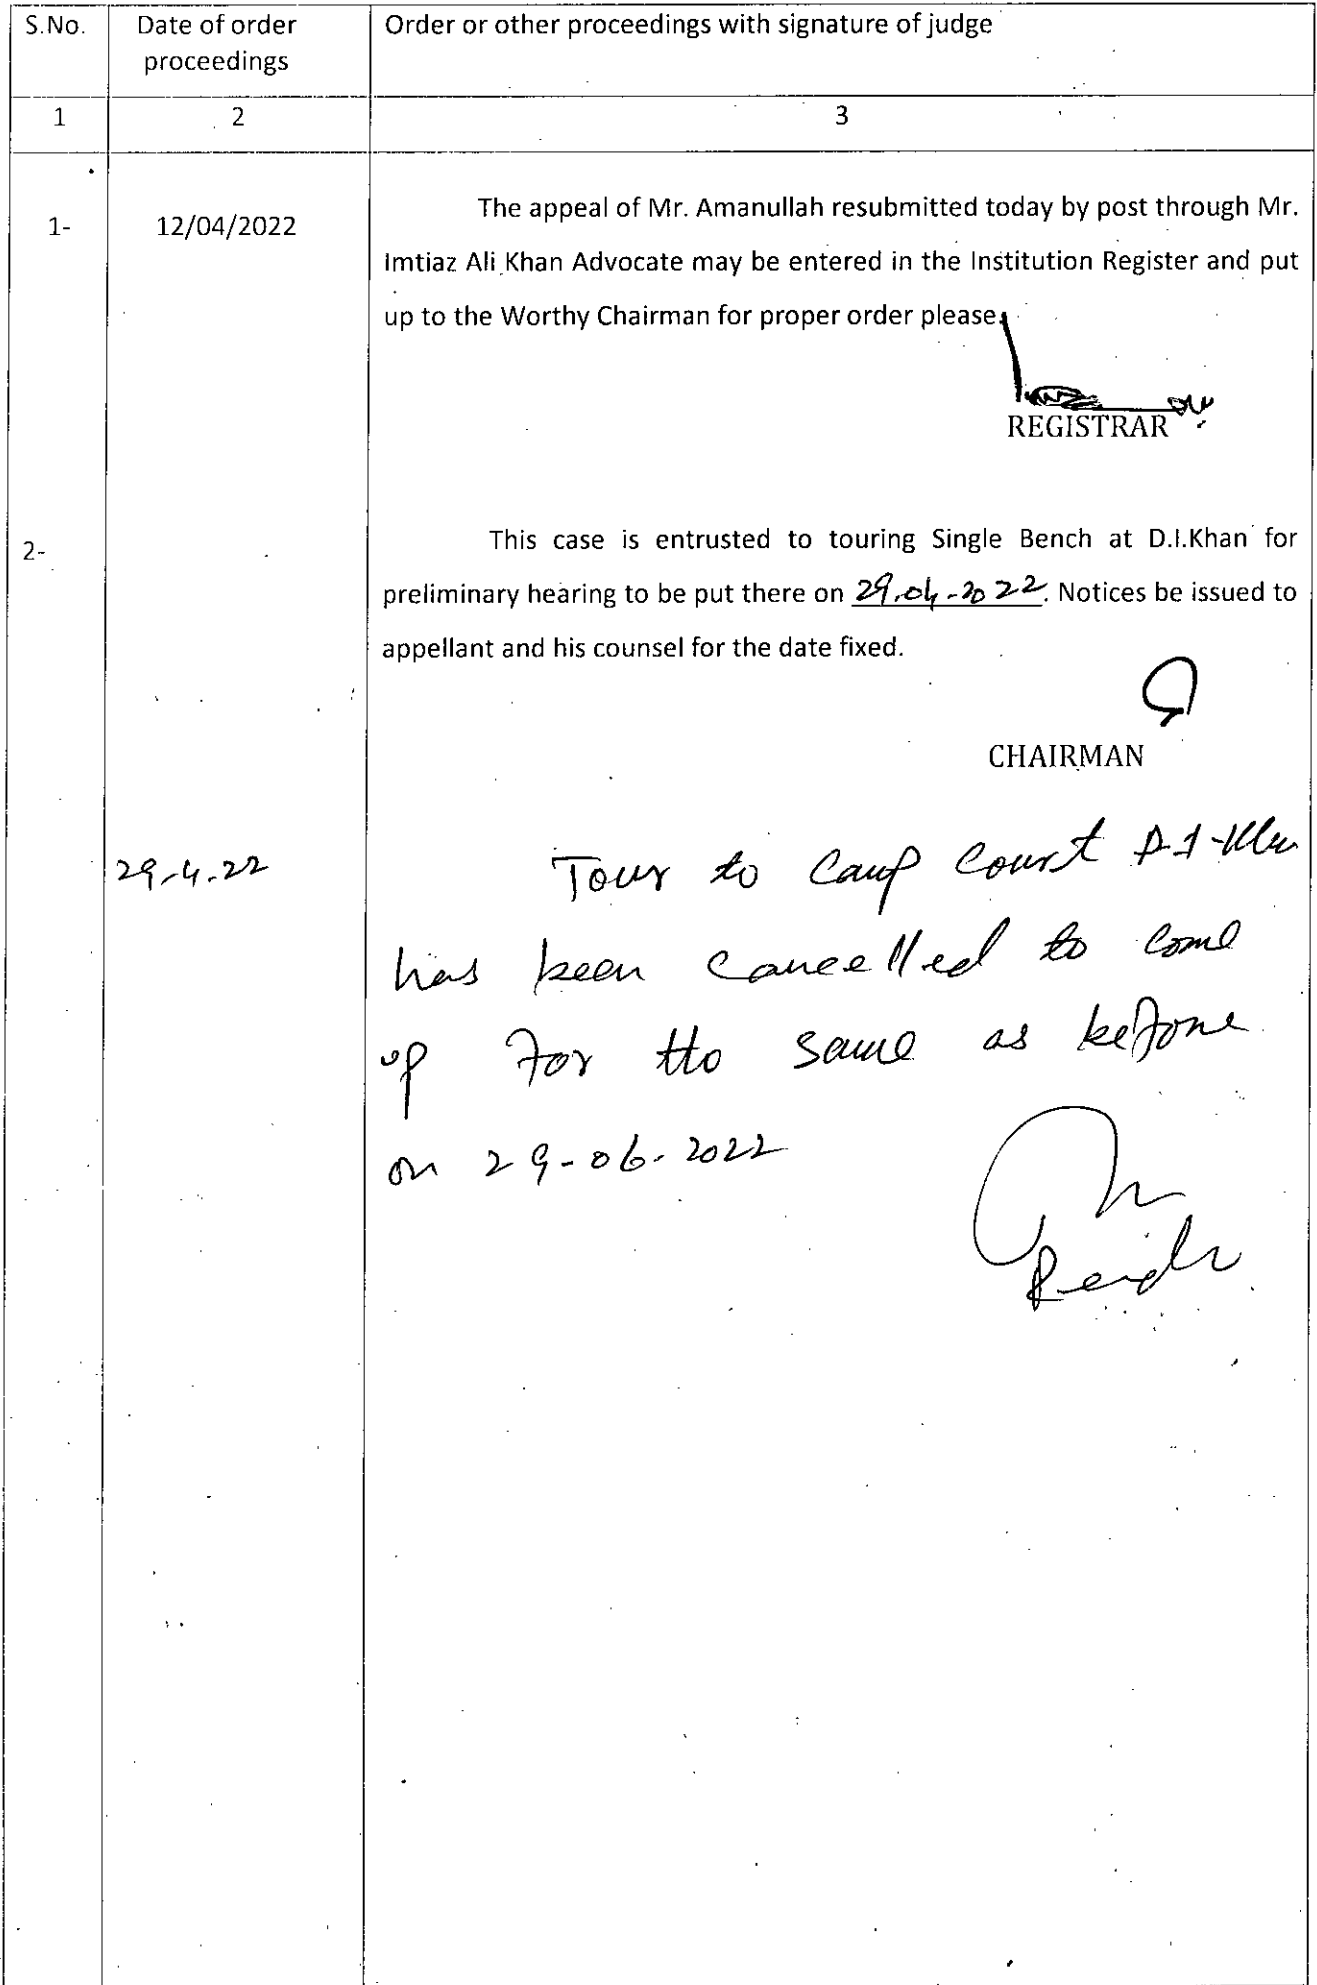 S.No. Date of order Order or other proceedings with signature of judge
proceedings
1 2 3
1- 12/04/2022 The appeal of Mr. Amanullah resubmitted today by post through Mr.
Imtiaz Ali Khan Advocate may be entered in the Institution Register and put
up to the Worthy Chairman for proper order please.
REGISTRAR
2- This case is entrusted to touring Single Bench at D.I.Khan for
preliminary hearing to be put there on 29.04-2022. Notices be issued to
appellant and his counsel for the date fixed.
CHAIRMAN
29-4-22 Tour to Camp Court D.I-Khan
has been cancelled to come
up for the same as before
on 29-06-2022